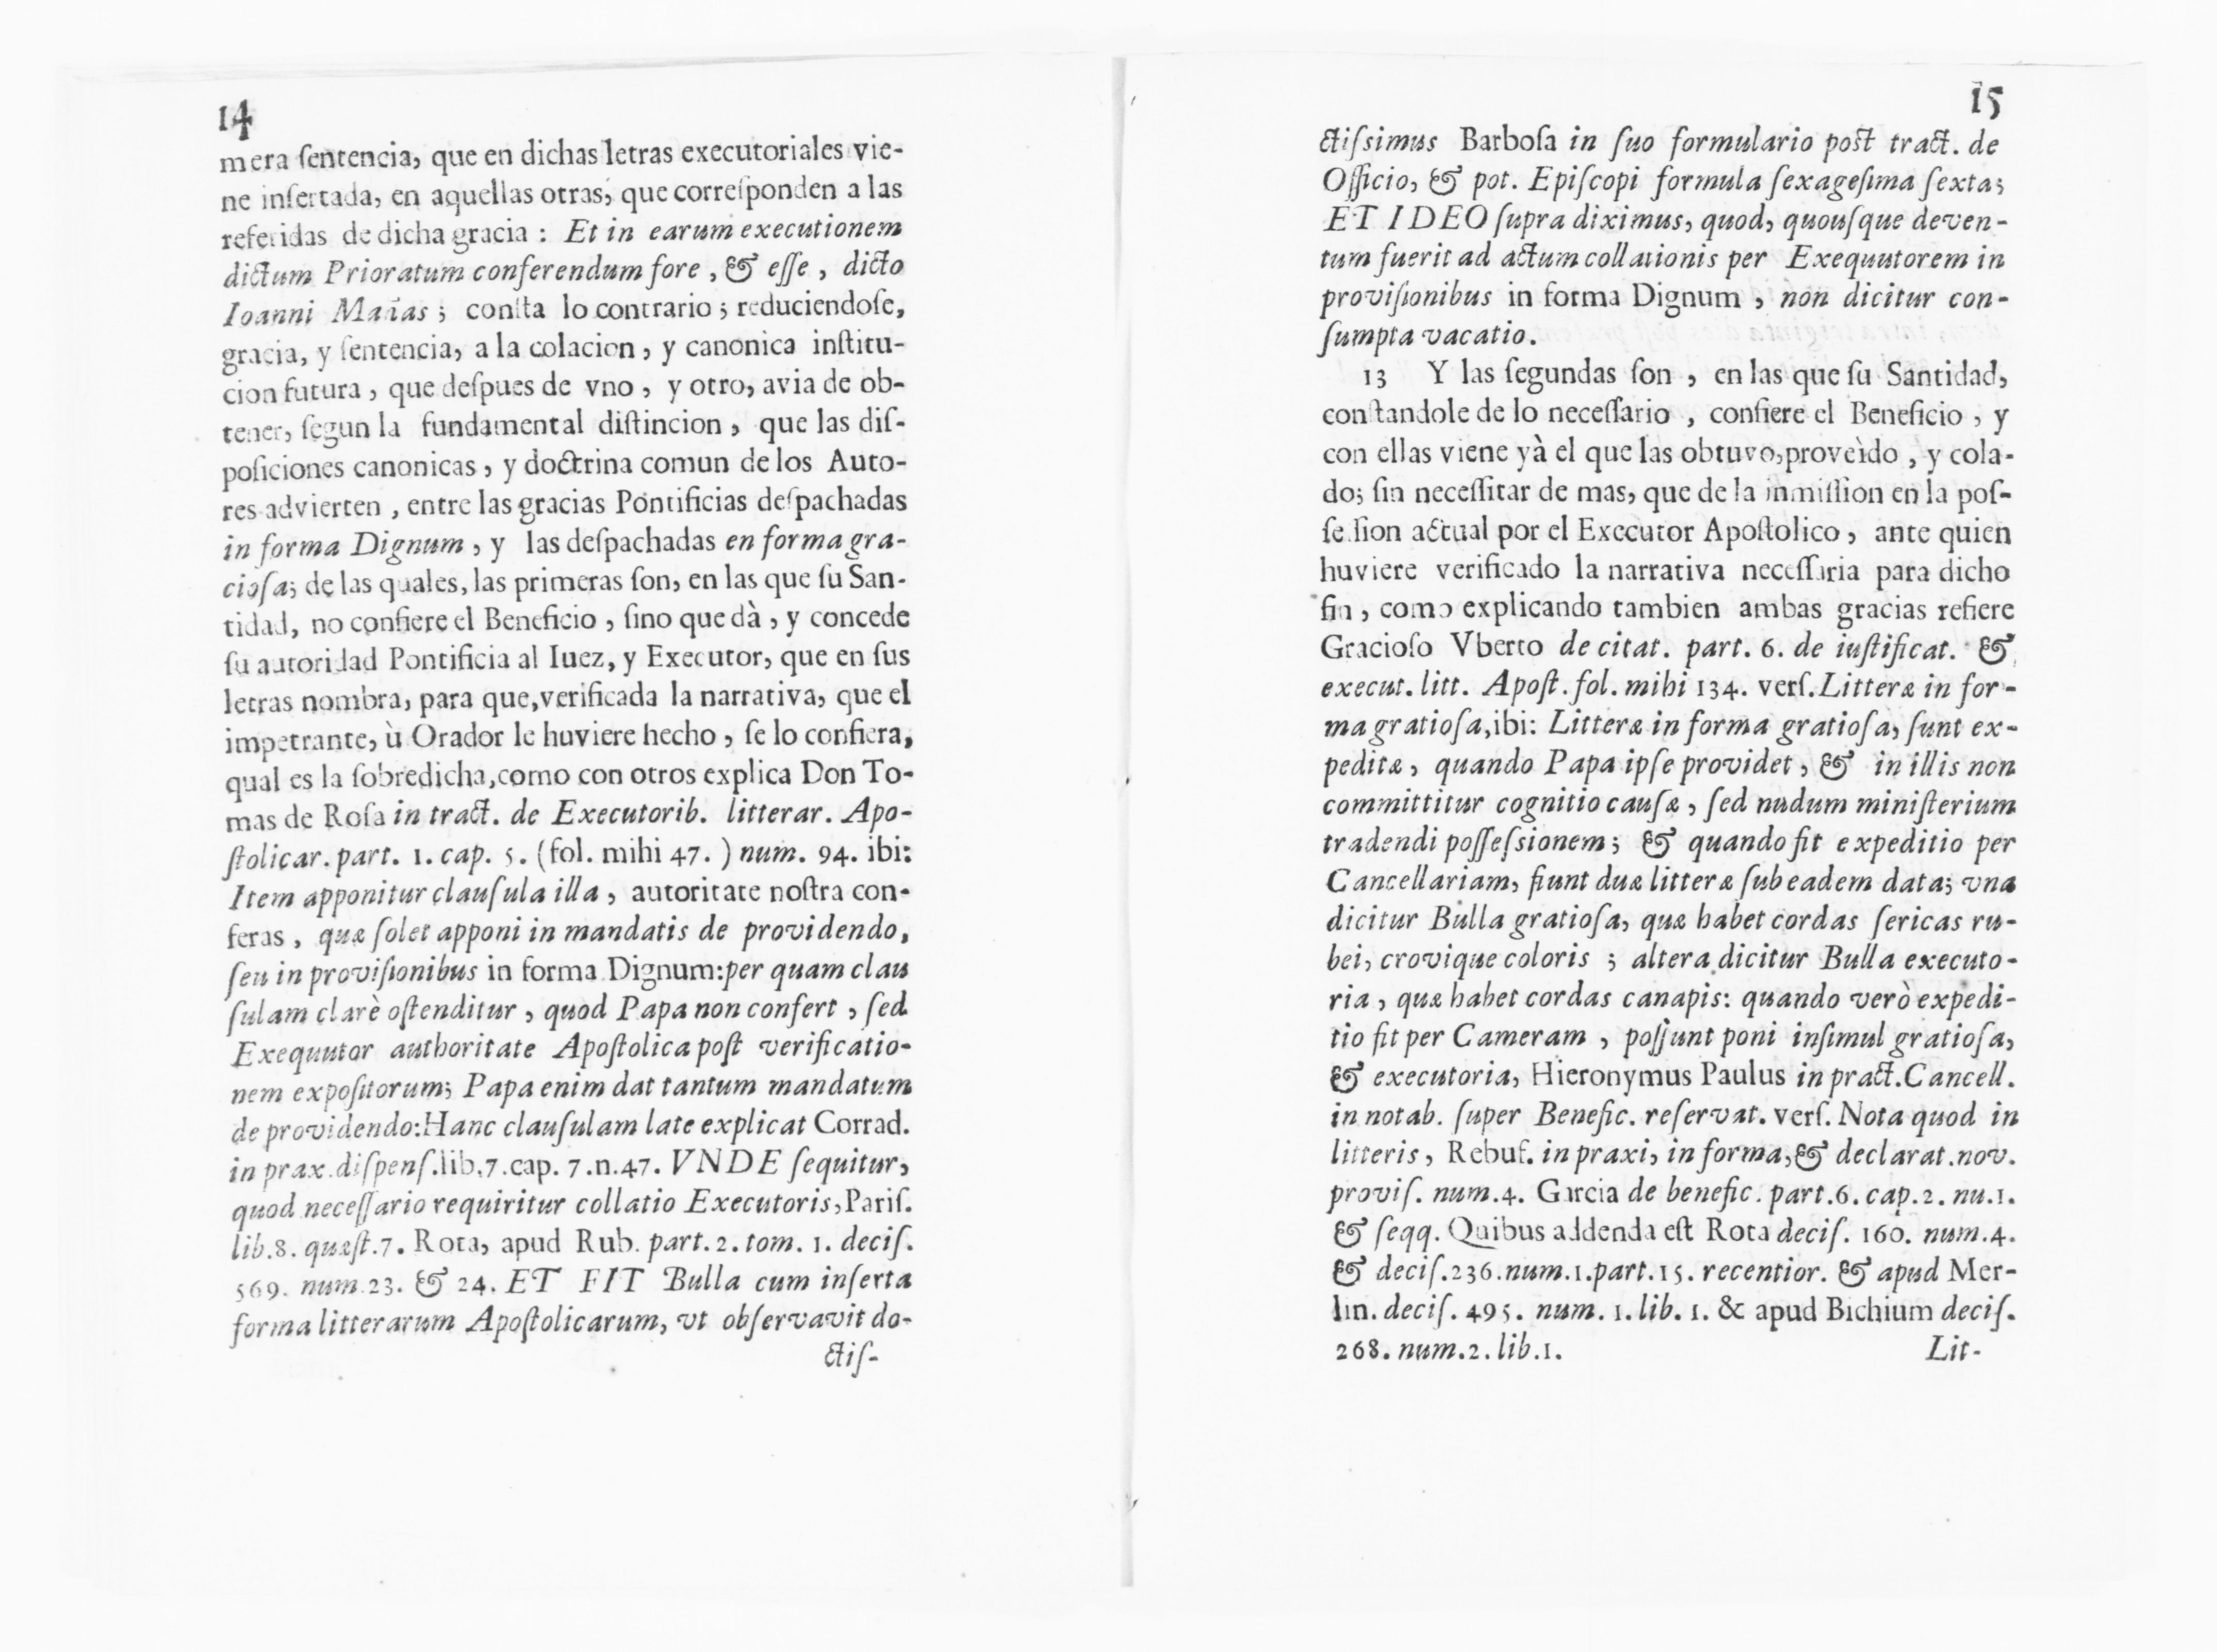 14
mera ſentencia, que en dichas letras executoriales vie-
ne inſertada, en aquellas otras, que correſponden a las
referidas de dicha gracia : Et in earum executionem
dictum Prioratum conferendum fore , & eſſe , dicto
Ioanni Mañas ; conſta lo contrario ; reduciendoſe,
gracia, y ſentencia, a la colacion , y canonica inſtitu-
cion futura , que deſpues de vno , y otro, avia de ob-
tener, ſegun la fundamental diſtincion , que las diſ-
poſiciones canonicas , y doctrina comun de los Auto-
res advierten , entre las gracias Pontificias deſpachadas
in forma Dignum , y las deſpachadas en forma gra-
cioſa; de las quales, las primeras ſon, en las que ſu San-
tidad, no confiere el Beneficio , ſino que dà , y concede
ſu autoridad Pontificia al Iuez, y Executor, que en ſus
letras nombra, para que,verificada la narrativa, que el
impetrante, ù Orador le huviere hecho , ſe lo confiera,
qual es la ſobredicha,como con otros explica Don To-
mas de Roſa in tract. de Executorib. litterar. Apo-
ſtolicar. part. 1. cap. 5. (fol. mihi 47. ) num. 94. ibi:
Item apponitur clauſula illa , autoritate noſtra con-
feras , quæ ſolet apponi in mandatis de providendo,
ſeu in proviſionibus in forma Dignum:per quam clau
ſulam clarè oſtenditur , quod Papa non confert , ſed
Exequutor authoritate Apoſtolica poſt verificatio-
nem expoſitorum; Papa enim dat tantum mandatum
de providendo:Hanc clauſulam late explicat Corrad.
in prax.diſpenſ.lib.7.cap. 7.n.47. VNDE ſequitur,
quod neceſſario requiritur collatio Executoris,Pariſ.
lib.8. quæſt.7. Rota, apud Rub. part.2. tom. 1. deciſ.
569. num.23. & 24. ET FIT Bulla cum inſerta
forma litterarum Apoſtolicarum, vt obſervavit do-
ctiſ-
15
ctiſsimus Barboſa in ſuo formulario poſt tract. de
Officio, & pot. Epiſcopi formula ſexageſima ſexta;
ET IDEO ſupra diximus, quod, quouſque deven-
tum fuerit ad actum collationis per Exequutorem in
proviſionibus in forma Dignum , non dicitur con-
ſumpta vacatio.
13 Y las ſegundas ſon , en las que ſu Santidad,
conſtandole de lo neceſſario , confiere el Beneficio , y
con ellas viene yà el que las obtuvo,proveìdo , y cola-
do; ſin neceſſitar de mas, que de la inmiſſion en la poſ-
ſeſſion actual por el Executor Apoſtolico , ante quien
huviere verificado la narrativa neceſſaria para dicho
fin , como explicando tambien ambas gracias refiere
Gracioſo Vberto de citat. part. 6. de iuſtificat. &
execut. litt. Apoſt. fol. mihi 134. verſ. Litteræ in for-
ma gratioſa,ibi: Litteræ in forma gratioſa, ſunt ex-
peditæ , quando Papa ipſe providet , & in illis non
committitur cognitio cauſæ , ſed nudum miniſterium
tradendi poſſeſsionem ; & quando fit expeditio per
Cancellariam, fiunt duæ litteræ ſub eadem data; vna
dicitur Bulla gratioſa, quæ habet cordas ſericas ru-
bei, crovique coloris ; altera dicitur Bulla executo-
ria , quæ habet cordas canapis: quando verò expedi-
tio fit per Cameram , poſſunt poni inſimul gratioſa,
& executoria, Hieronymus Paulus in pract.Cancell.
in notab. ſuper Benefic. reſervat. verſ. Nota quod in
litteris , Rebuf. in praxi, in forma,& declarat.nov.
proviſ. num.4. Garcia de benefic. part.6. cap.2. nu.1.
& ſeqq. Quibus addenda eſt Rota deciſ. 160. num.4.
& deciſ.236.num.1.part.15. recentior. & apud Mer-
lin. deciſ. 495. num. 1. lib. 1. & apud Bichium deciſ.
268. num.2. lib.1.
Lit-